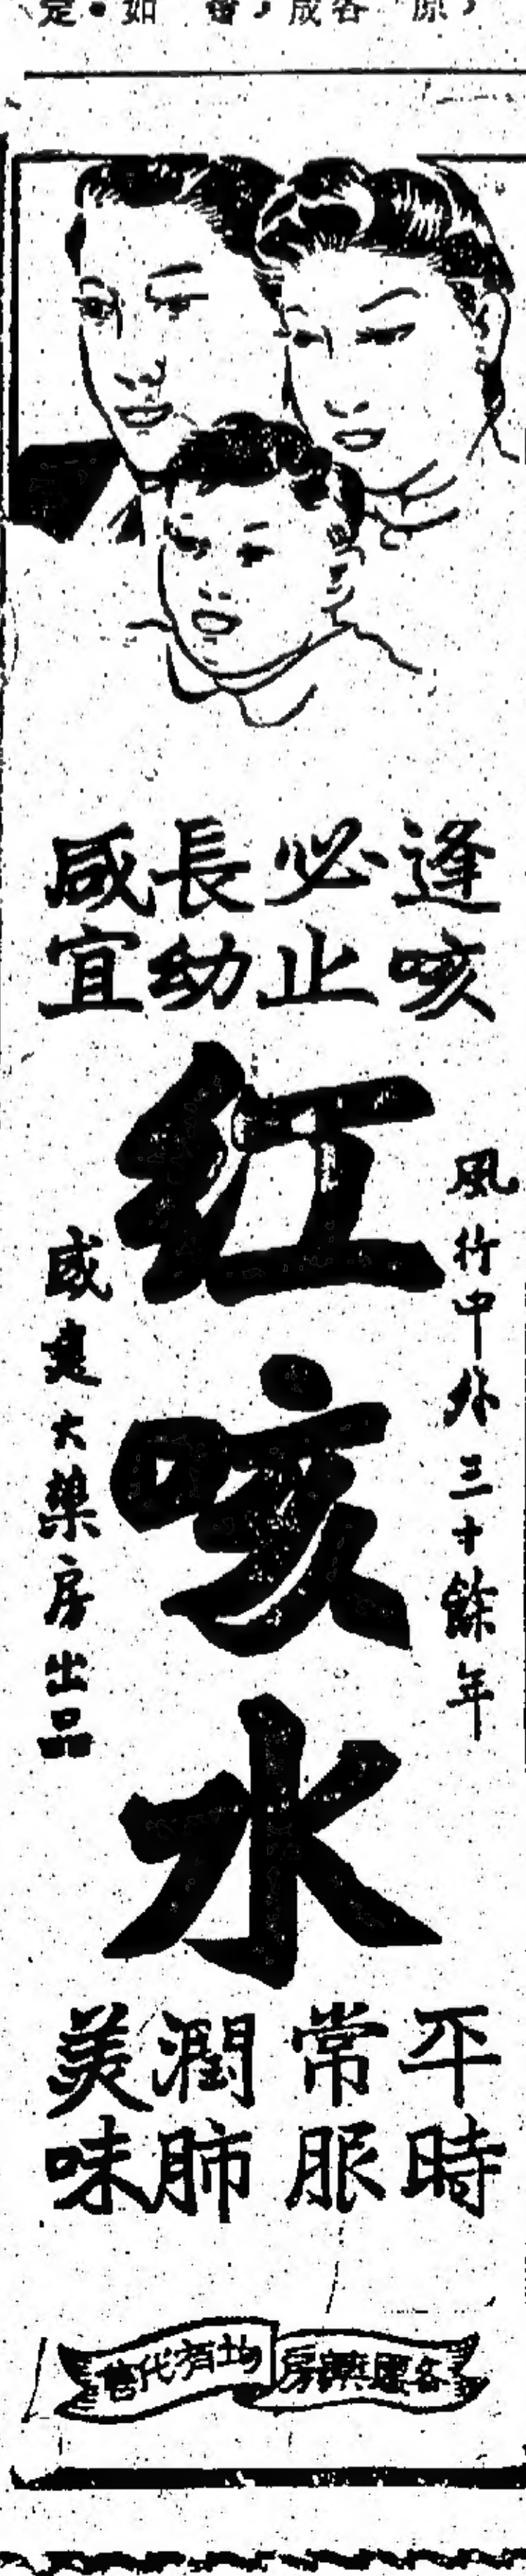 逢咳
必止
長幼
咸宜
風行中外三十餘年
紅咳水
咸建大藥房出品
平時
常服
潤肺
美味
各壓藥房
均有代售